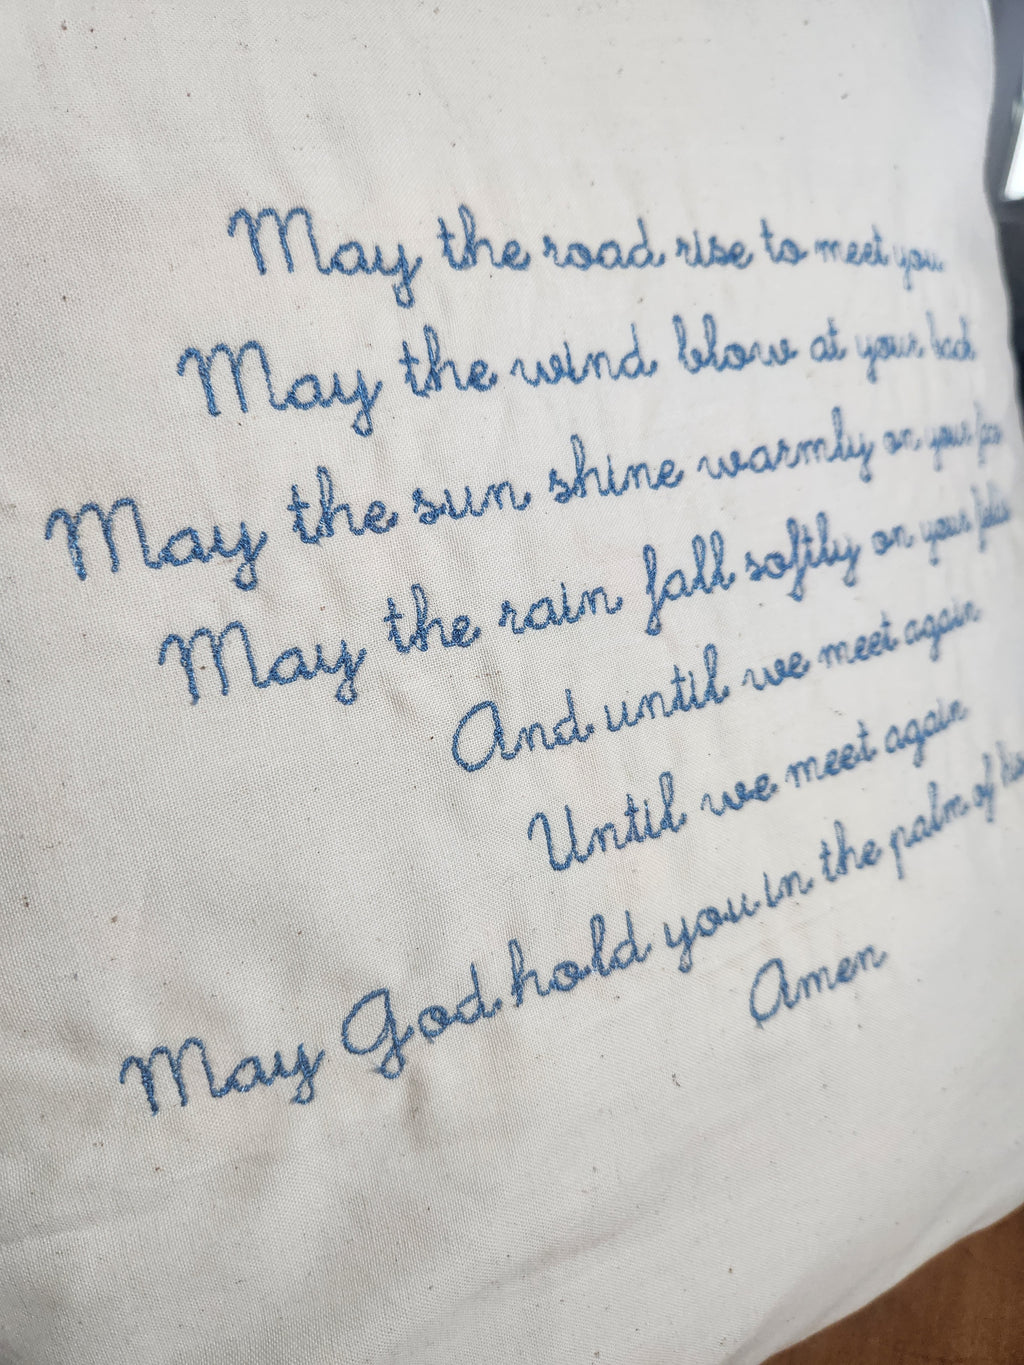 May the road rise to meet you
May the wind blow at your back
May the sun shine warmly on your face
May the rain fall softly on your fields
And until we meet again
Until we meet again
May God hold you in the palm of his
Amen